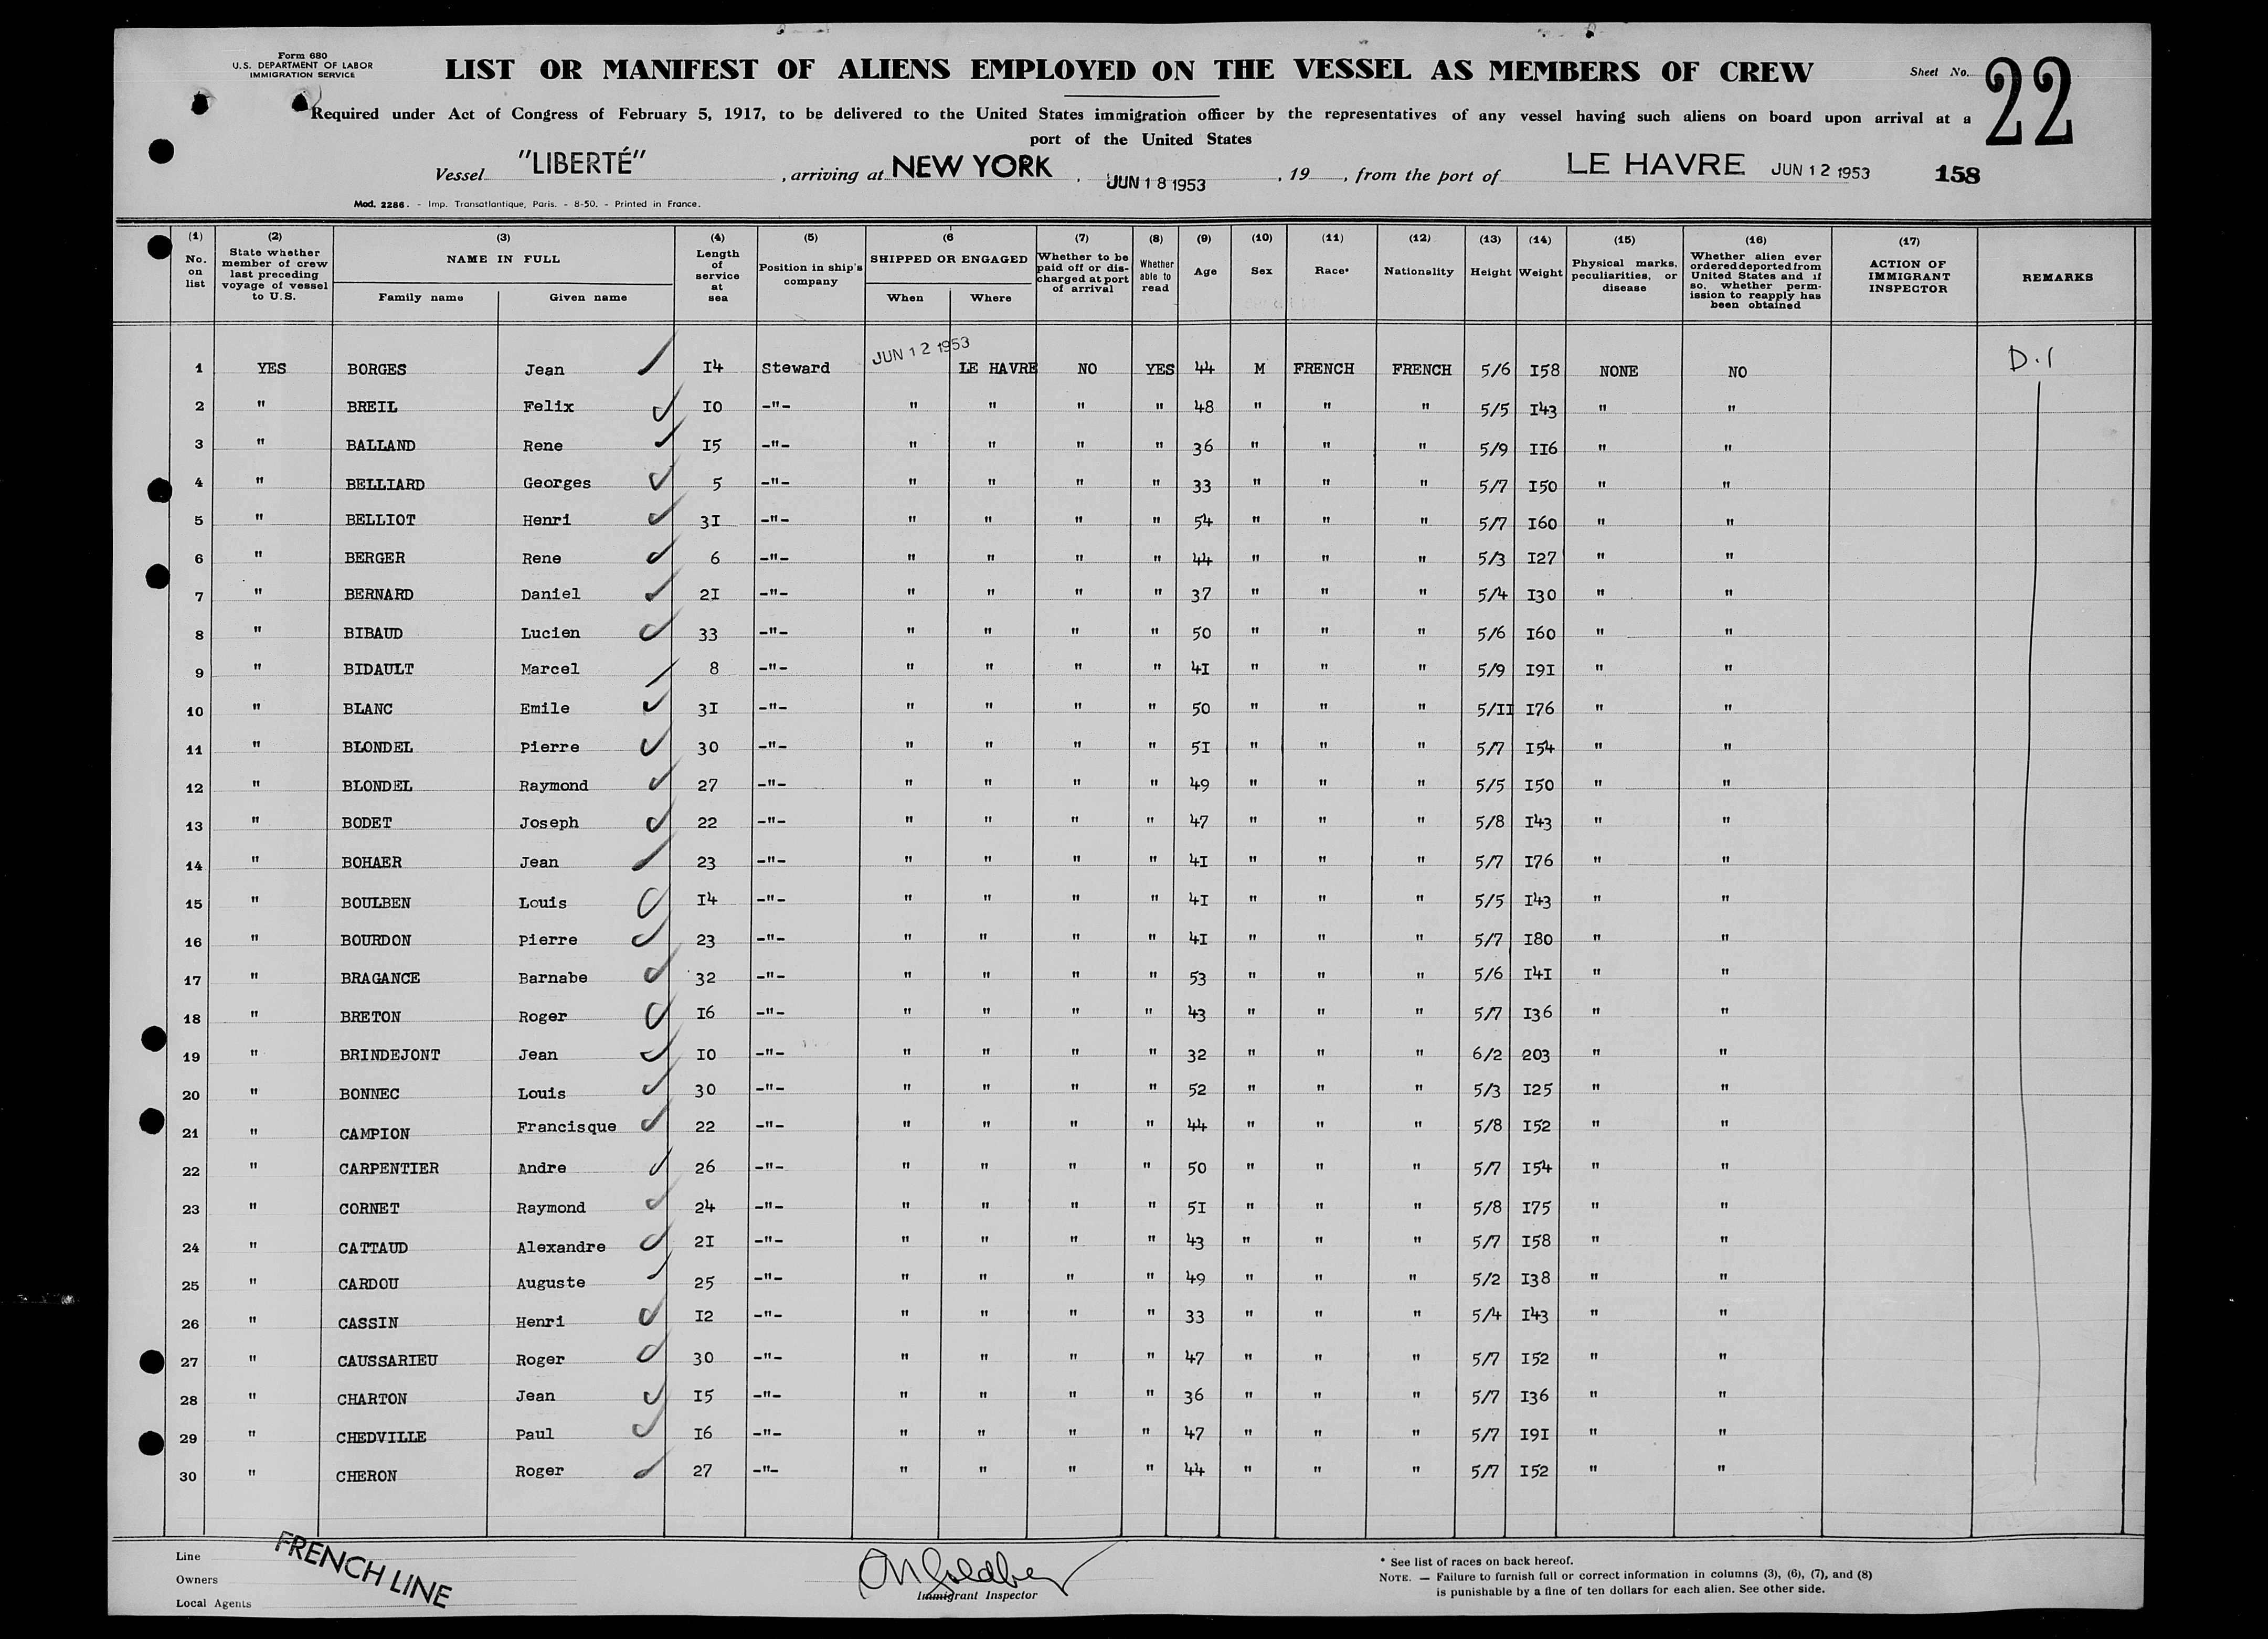 Form 680
U.S. DEPARTMENT OF LABOR
IMMIGRATION SERVICE
LIST OR MANIFEST OF ALIENS EMPLOYED ON THE VESSEL AS MEMBERS OF CREW
Sheet No. 22
Required under Act of Congress of February 5, 1917, to be delivered to the United States immigration officer by the representatives of any vessel having such aliens on board upon arrival at a
port of the United States
Vessel "LIBERTÉ", arriving at NEW YORK, JUN 18 1953, 19, from the port of LE HAVRE JUN 12 1953 158
Mod. 2286. - Imp. Transatlantique, Paris. - 8-50. - Printed in France.
(1) No. on list (2) State whether member of crew last preceding voyage of vessel to U.S. (3) NAME IN FULL Family name Given name (4) Length of service at sea (5) Position in ship's company (6 SHIPPED OR ENGAGED When Where (7) Whether to be paid off or discharged at port of arrival (8) Whether able to read (9) Age (10) Sex (11) Race* (12) Nationality (13) Height (14) Weight (15) Physical marks, peculiarities, or disease (16) Whether alien ever ordered deported from United States and if so, whether permission to reapply has been obtained (17) ACTION OF IMMIGRANT INSPECTOR REMARKS
1 YES BORGES Jean I4 Steward JUN 12 1953 LE HAVRE NO YES 44 M FRENCH FRENCH 5/6 I58 NONE NO D.1
2 " BREIL Felix I0 -"- " " " " 48 " " " 5/5 I43 " "
3 " BALLAND Rene I5 -"- " " " " 36 " " " 5/9 II6 " "
4 " BELLIARD Georges 5 -"- " " " " 33 " " " 5/7 I50 " "
5 " BELLIOT Henri 3I -"- " " " " 54 " " " 5/7 I60 " "
6 " BERGER Rene 6 -"- " " " " 44 " " " 5/3 I27 " "
7 " BERNARD Daniel 2I -"- " " " " 37 " " " 5/4 I30 " "
8 " BIBAUD Lucien 33 -"- " " " " 50 " " " 5/6 I60 " "
9 " BIDAULT Marcel 8 -"- " " " " 4I " " " 5/9 I9I " "
10 " BLANC Emile 3I -"- " " " " 50 " " " 5/II I76 " "
11 " BLONDEL Pierre 30 -"- " " " " 5I " " " 5/7 I54 " "
12 " BLONDEL Raymond 27 -"- " " " " 49 " " " 5/5 I50 " "
13 " BODET Joseph 22 -"- " " " " 47 " " " 5/8 I43 " "
14 " BOHAER Jean 23 -"- " " " " 4I " " " 5/7 I76 " "
15 " BOULBEN Louis I4 -"- " " " " 4I " " " 5/5 I43 " "
16 " BOURDON Pierre 23 -"- " " " " 4I " " " 5/7 I80 " "
17 " BRAGANCE Barnabe 32 -"- " " " " 53 " " " 5/6 I4I " "
18 " BRETON Roger I6 -"- " " " " 43 " " " 5/7 I36 " "
19 " BRINDEJONT Jean I0 -"- " " " " 32 " " " 6/2 203 " "
20 " BONNEC Louis 30 -"- " " " " 52 " " " 5/3 I25 " "
21 " CAMPION Francisque 22 -"- " " " " 44 " " " 5/8 I52 " "
22 " CARPENTIER Andre 26 -"- " " " " 50 " " " 5/7 I54 " "
23 " CORNET Raymond 24 -"- " " " " 5I " " " 5/8 I75 " "
24 " CATTAUD Alexandre 2I -"- " " " " 43 " " " 5/7 I58 " "
25 " CARDOU Auguste 25 -"- " " " " 49 " " " 5/2 I38 " "
26 " CASSIN Henri I2 -"- " " " " 33 " " " 5/4 I43 " "
27 " CAUSSARIEU Roger 30 -"- " " " " 47 " " " 5/7 I52 " "
28 " CHARTON Jean I5 -"- " " " " 36 " " " 5/7 I36 " "
29 " CHEDVILLE Paul I6 -"- " " " " 47 " " " 5/7 I9I " "
30 " CHERON Roger 27 -"- " " " " 44 " " " 5/7 I52 " "
Line
Owners
Local Agents
FRENCH LINE
Immigrant Inspector
* See list of races on back hereof.
NOTE. — Failure to furnish full or correct information in columns (3), (6), (7), and (8)
is punishable by a fine of ten dollars for each alien. See other side.